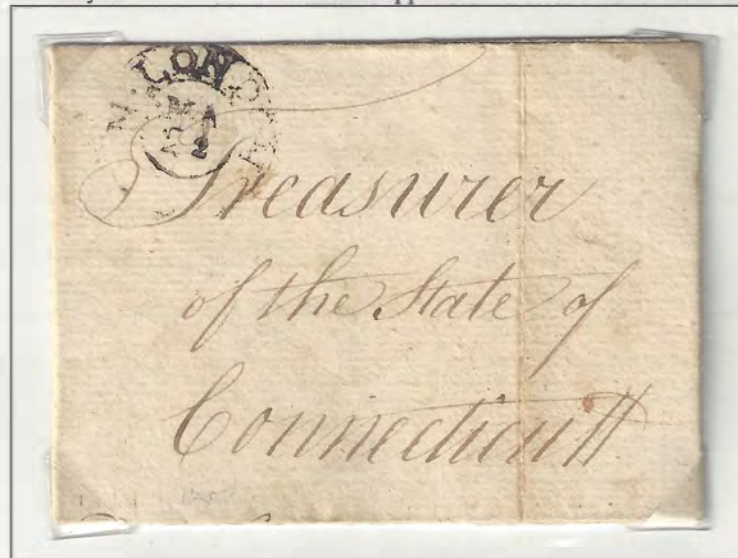 N. LONDON
MA
22
Treasurer
of the State of
Connecticutt